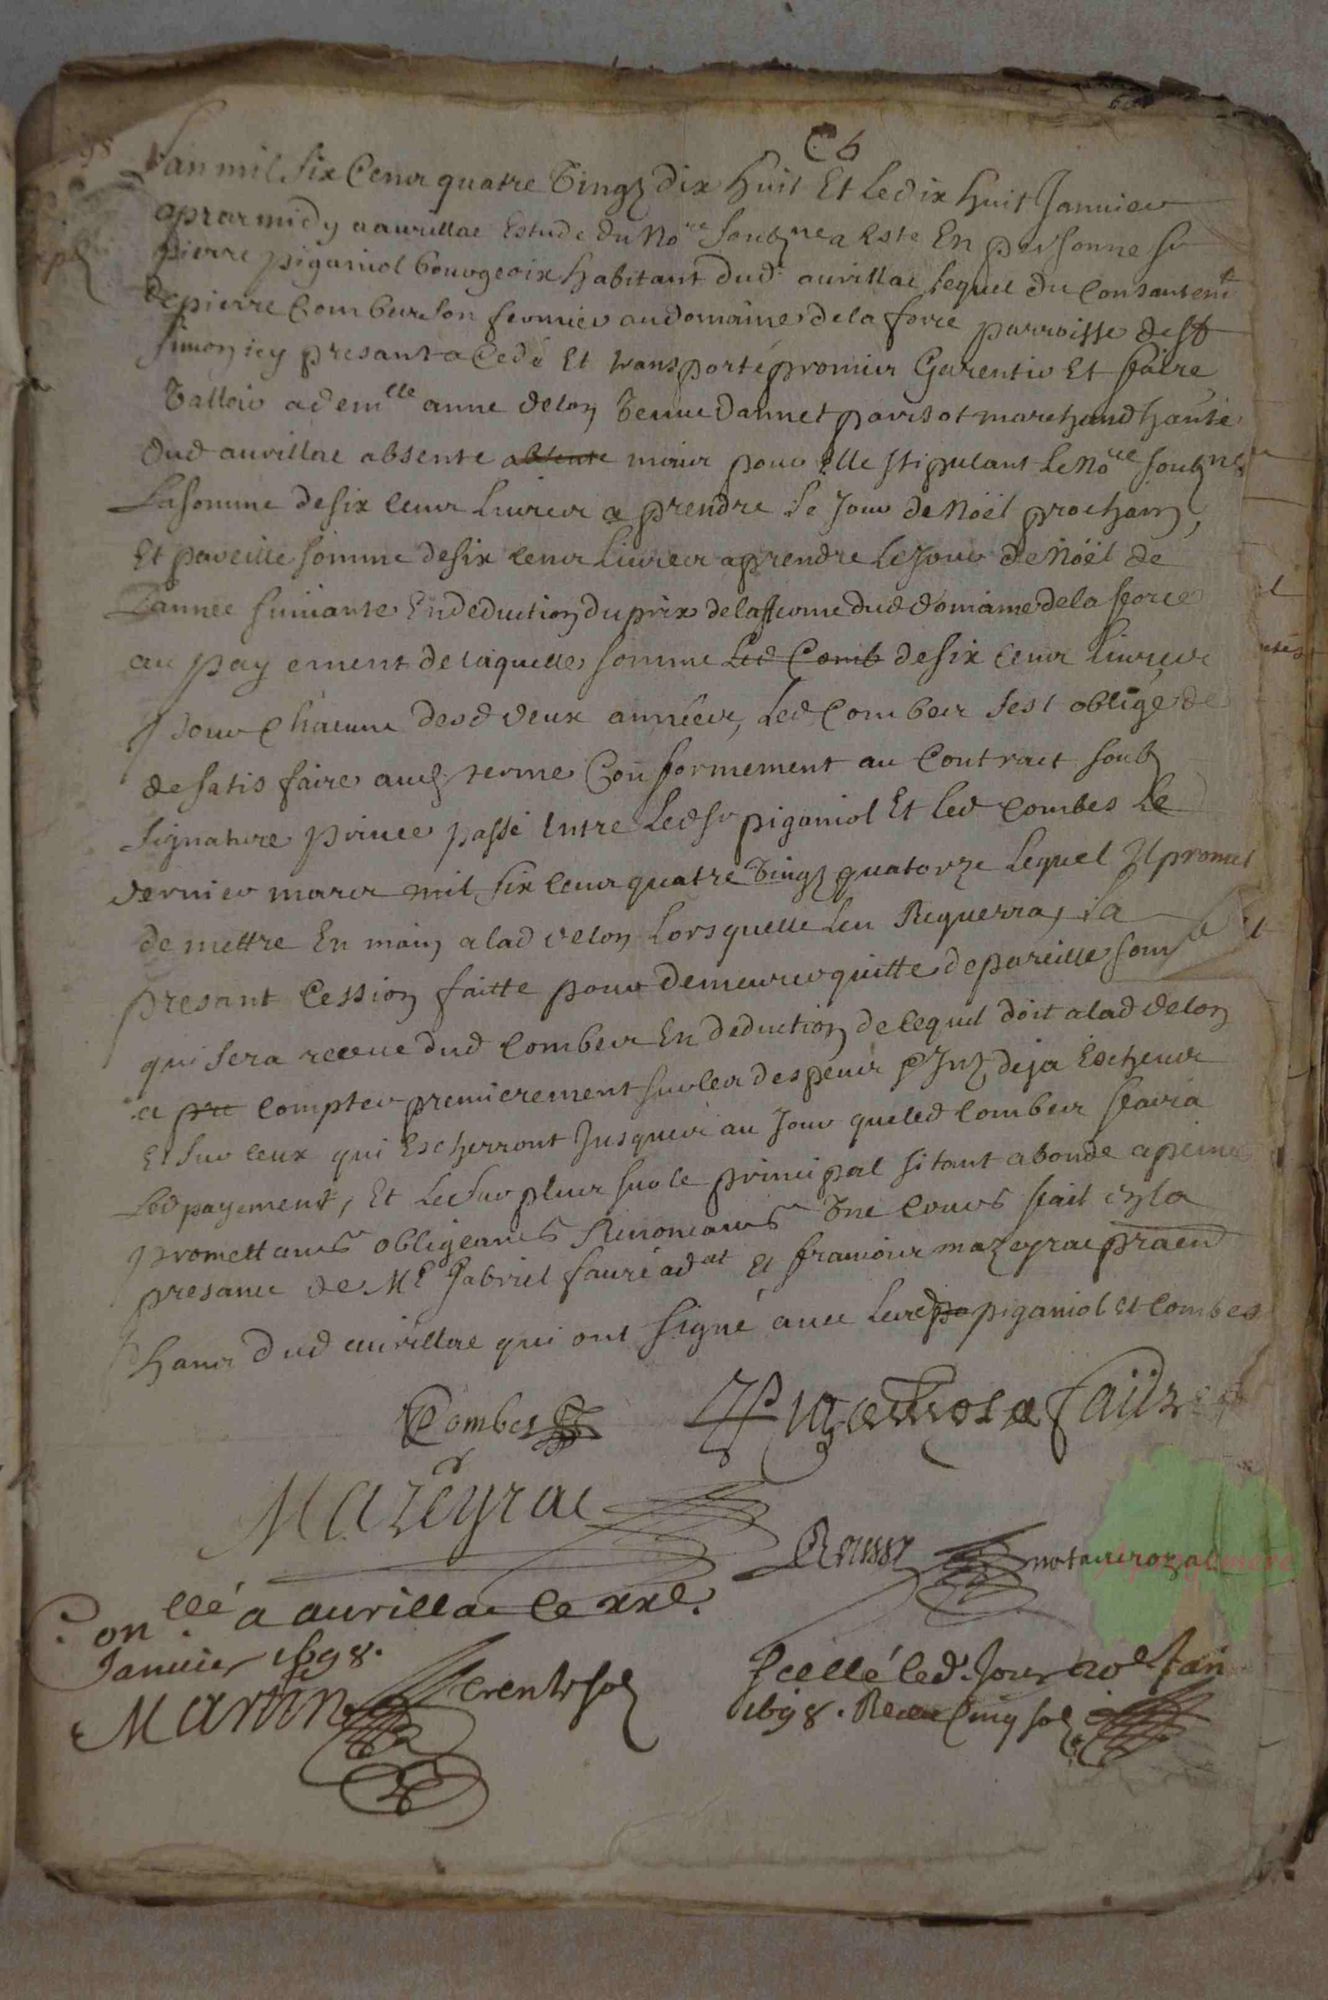 Lan mil six Cens quatre Vingz dix huit Et Le dix huit Janvier
apres midy a aurillac Estude du No.re soubz.ne a este En personne sr
pierre piganiol bourgeoix habitant dud. aurillac lequel du consantemt
de pierre Combes son fermier au domaine de la force parroisse de st
simon icy presant a Cedé Et transporté promis Garentir Et faire
Valloir a dem.lle anne delon Veuve dannet parisot marchand
dud aurillac absente absente pour Elle stipulant Le No.re soubz.ne
La somme de six cens Livres a prendre Le Jour de Noël prochain,
Et pareille somme de six cens Livres a prendre Le Jour de Noël de
Lannee suivante En deduction du prix de laffierme dud domaine de la force
au payement de laquelle somme Led Comb de six cens Livres
pour Chacune desd deux années, Led Combes sest obligé de
de satisfaire aud terme Conformement au Contract soubz
signature privee passé Entre Led sr piganiol Et led Combes Le
dernier mars mil six cens quatre Vingz quatorze Lequel Il promet
de mettre En main a lad delon Lors quelle Len Requerra, La
presant Cession faitte pour demeurer quitte de pareille som
qui sera receue dud Combes En deduction de ce quil doit a lad delon
a pre compter premierement sur les despens deja Escheus
Et sur ceux qui Escherront Jusques au Jour que led Combes faira
Led payement, Et Le surplus sur le principal si tant abonde a peine
promettans obligeans Renoncans Une Cours fait Ez la
presance de Me Gabriel fauré ad.at Et francois mazeyrac prascn
hans dud aurillac qui ont signé avec Lesd pa piganiol et Combes
Combes Piganiol faure
Mazeyrac
notaire royal
Con.llé a aurillac le xxe.
Janvier 1698.
Martin
Scellé led. Jour 20e Jan
1698. Receu Cinq solz